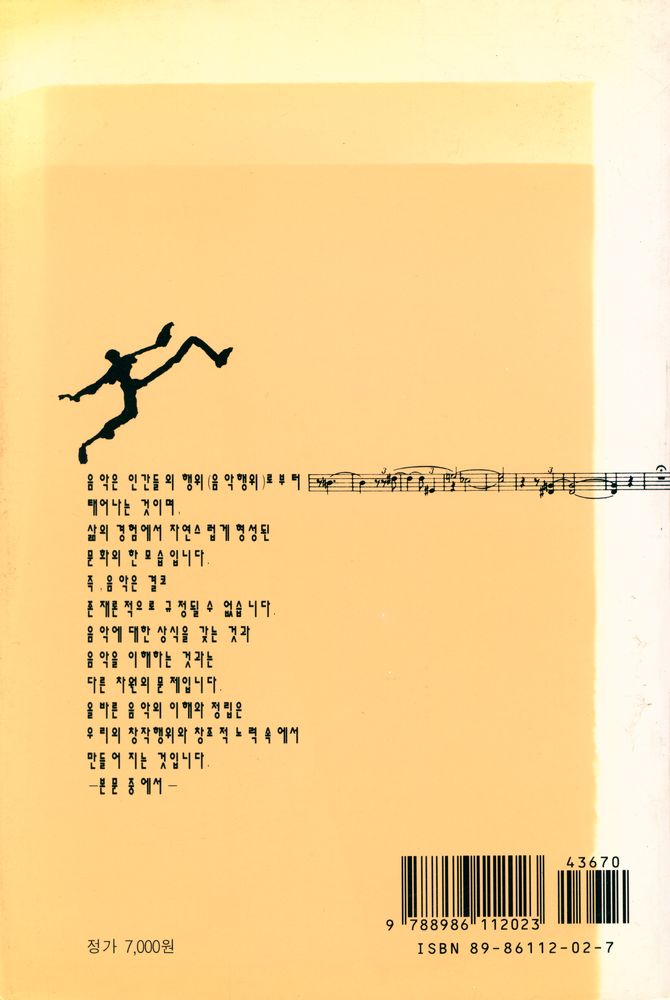 음악은 인간들의 행위(음악행위)로부터
태어나는 것이며,
삶의 경험에서 자연스럽게 형성된
문화의 한 모습입니다.
즉, 음악은 결코
존재론적으로 규정될 수 없습니다.
음악에 대한 상식을 갖는 것과
음악을 이해하는 것과는
다른 차원의 문제입니다.
올바른 음악의 이해와 정립은
우리의 창작행위와 창조적 노력 속에서
만들어 지는 것입니다.
—본문 중에서—
43670
9 788986 112023
ISBN 89-86112-02-7
정가 7,000원